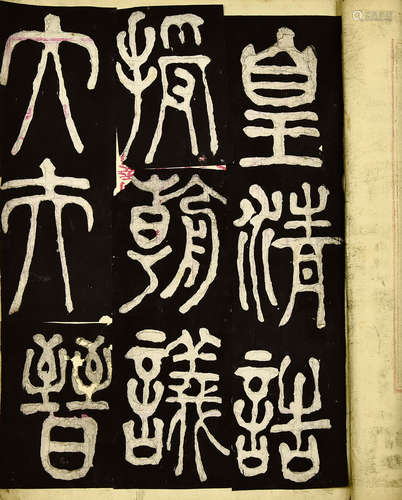 皇清誥
授朝議
大夫晉